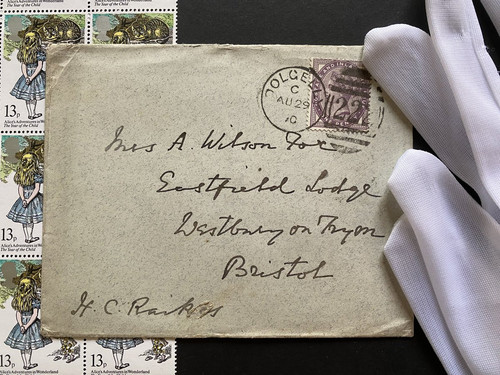 DOLGELLEY
C
AU 29
90
122
Mrs A. Wilson Fox
Eastfield Lodge
Westbury on Trym
Bristol
H. C. Raikes
13p
Alice's Adventures in Wonderland
The Year of the Child
13p
Alice's Adventures in Wonderland
The Year of the Child
13p
Alice's Adventures in Wonderland
13p
Alice's Adventures in Wonderland